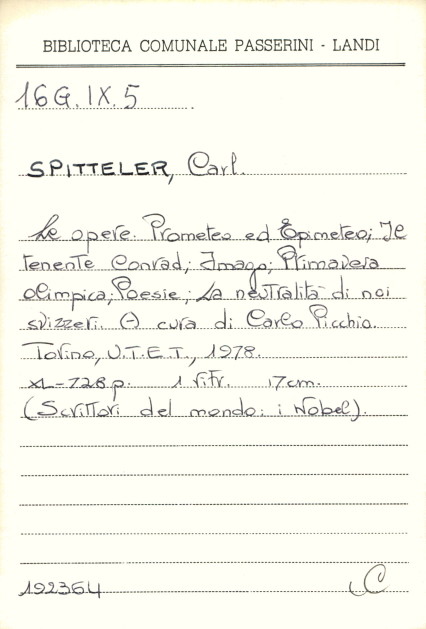 BIBLIOTECA COMUNALE PASSERINI - LANDI
16G.IX.5
SPITTELER, Carl.
Le opere. Prometeo ed Epimeteo; Il
tenente Conrad; Imago; Primavera
olimpica; Poesie; La neutralità di noi
svizzeri. A cura di Carlo Picchio.
Torino, U.T.E.T., 1978.
XL-728 p. 1 ritr. 17cm.
(Scrittori del mondo: i Nobel).
192364 C